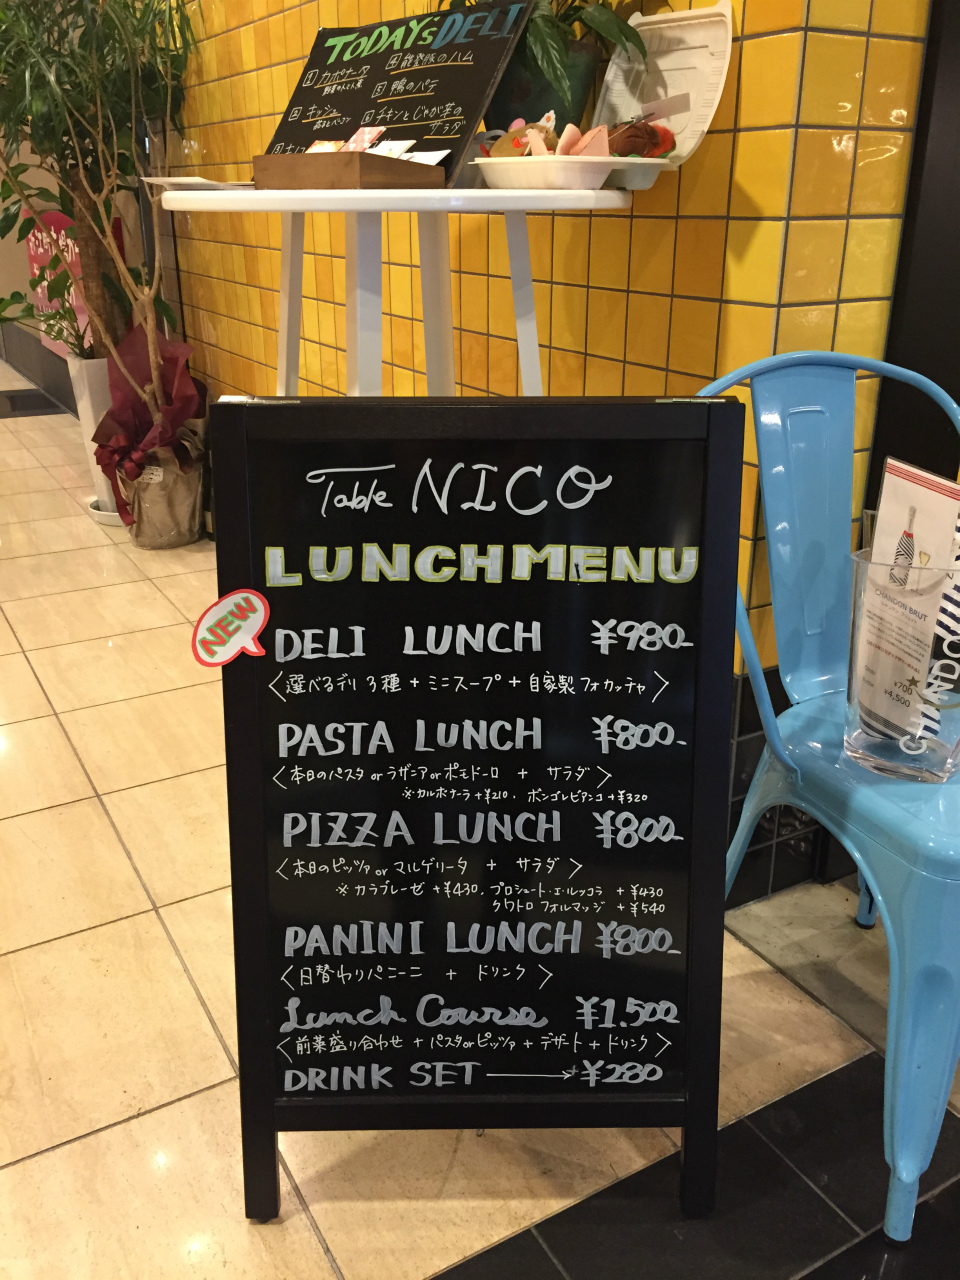 TODAY's DELI
1 カポナータ
4 能登豚のハム
5 鴨のパテ
キッシュ
6 チキンとじゃが芋の
サラダ
Table NICO
LUNCH MENU
NEW
DELI LUNCH ¥980-
〈選べるデリ3種 + ミニスープ + 自家製フォカッチャ〉
PASTA LUNCH ¥800-
〈本日のパスタ or ラザニア or ポモドーロ + サラダ〉
※カルボナーラ+¥210、ボンゴレビアンコ+¥320
PIZZA LUNCH ¥800-
〈本日のピッツァ or マルゲリータ + サラダ〉
※カラブレーゼ +¥430、プロシュート・エ・ルッコラ +¥430
クワトロ フォルマッジ +¥540
PANINI LUNCH ¥800-
〈日替わりパニーニ + ドリンク〉
Lunch Course ¥1.500
〈前菜盛り合わせ + パスタorピッツァ + デザート + ドリンク〉
DRINK SET → +¥280
CHANDON BRUT
¥700
¥4,500
CHANDON